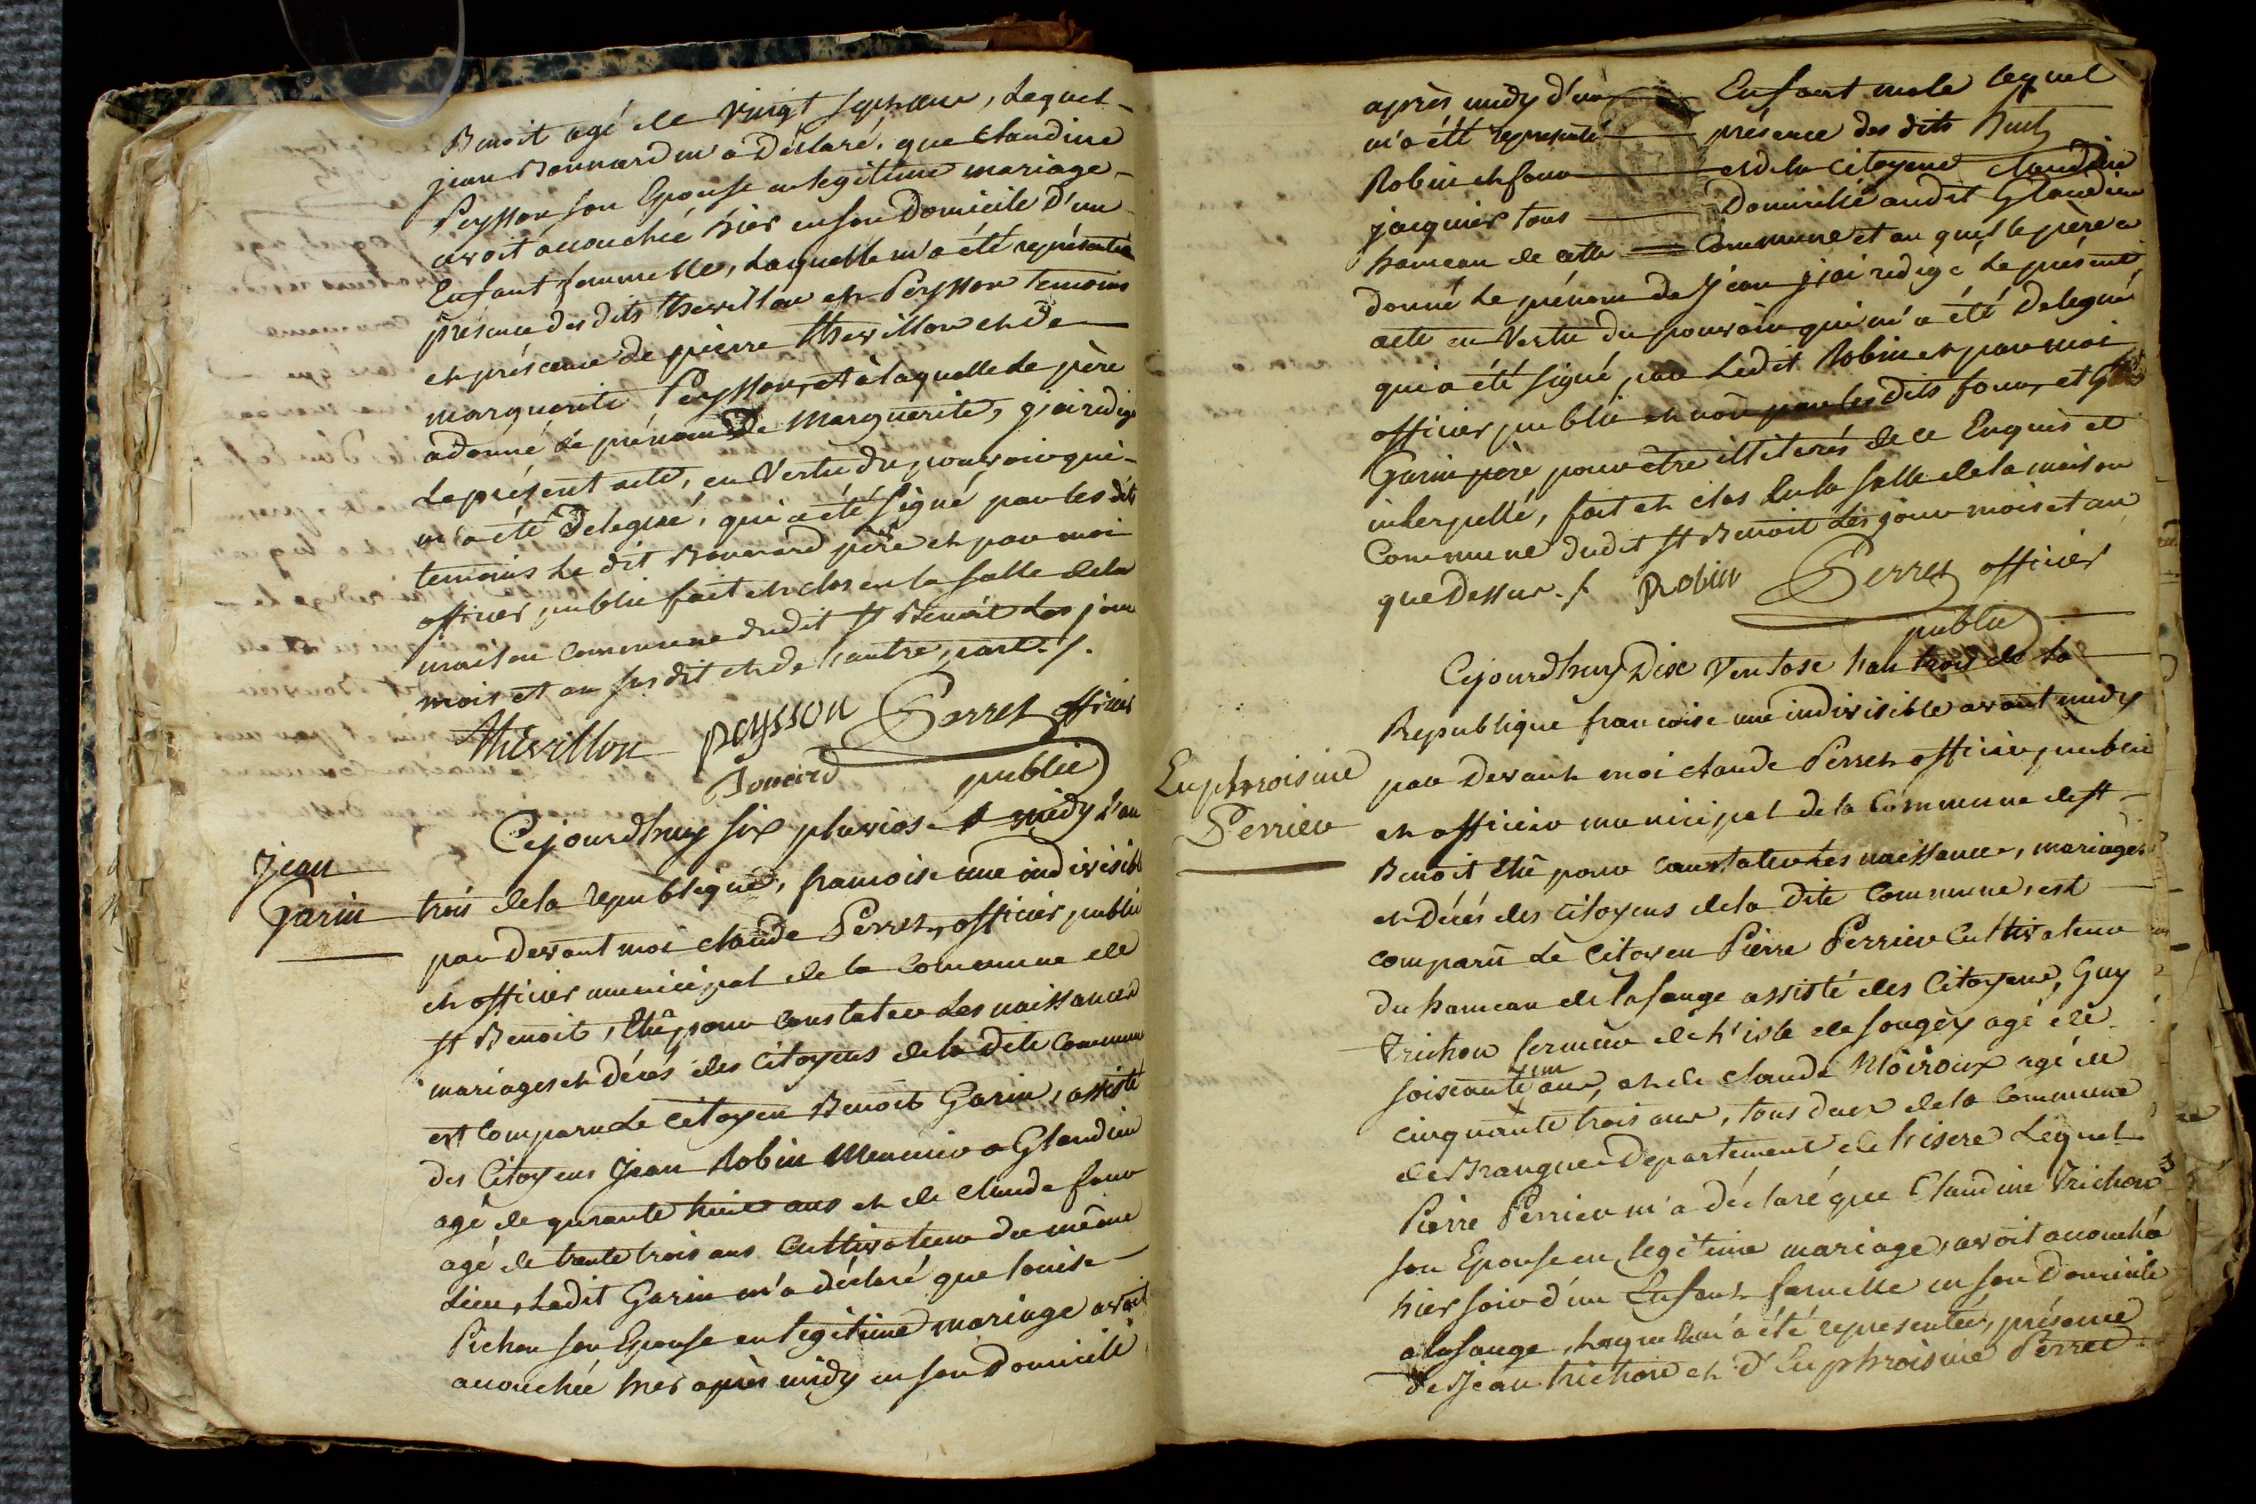 Benoit agé de vingt sept ans, Lequel
jean Bonnard m'a Déclaré, que Claudine
Peysson son Epouse en legitime mariage
avoit accouchée hier en son Domicile D'un
Enfant femmelle, Laquelle m'a été représentée
présence des dits thevillon et Peysson temoins
et présence de pierre thevillon et de
marguerite Peysson, et à laquelle Le père
a donné Le prénom De Marguerite, j'ai redigé
Le présent acte, en Vertu du pouvoir qui
m'a été Delegué, qui a été Signé par les dits
temoins Le dit Bonnard père et par moi
officier public fait et clos en la salle dela
maison commune dudit St Benoit Les jour
mois et an susdit et de l'autre part ./.
Thévillon peysson Perret officier
Bonard public
Jean
Garin
Cejourdhuy six pluviose a midy L'an
trois dela republique, francoise une indivisible
par devant moi claude Perret, officier public
et officier municipal de la commune de
St Benoit, Elû pour constater Les naissances
mariages et décés des citoyens dela Dite commune
est comparu Le citoyen Benoit Garin, assisté
des Citoyens Jean Robin Meunier a Glandieu
agé de quarante huit ans et de claude four
agé de trente trois ans Cultivateur du même
Lieu, Ledit Garin m'a déclaré que Louise
Pichon son Epouse en legitime mariage avoit
accouchée hier après midy en son Domicile
après midy d'un Enfant male lequel
m'a été representé présence des dits
Robin et four et dela citoyene claudine
jacquier tous Domicilié audit Glandieu
hameau de cette Commune et au quel le père a
donné Le prénom de Jean j'ai redigé Le présent
acte en Vertu du pouvoir qui m'a été Delegué
qui a été signé par Ledit Robin et par moi
officier public et non par les dits four, et
Garin père pour être illiterés de ce Enquis et
interpellé, fait et clos En la salle dela maison
Commune dudit St Benoit Les jour mois et an
que Dessus ./. Robin Perret officier
public
Cejourdhuy Dix Ventose l'an trois de La
Republique francoise une indivisible avant midy
Euphroisine
Perrier
par Devant moi claude Perret officier public
et officier municipal dela Commune de St
Benoit Elû pour Constater Les naissance, mariages
et Décés des citoyens dela Dite Commune, est
comparû Le Citoyen Pierre Perrier Cultivateur
du hameau de lasauge assisté des Citoyens, Guy
Trichon fermier de L'isle de sougey agé de
soiscante un ans, et de claude Moiroux agé de
cinquante trois ans, tous deux dela Commune
de Brangue Departement de Lisere Lequel
Pierre Perrier m'a déclaré que Claudine Trichon
son Epouse en legitime mariage, avoit accouchée
hier soir d'un Enfant femelle en son Domicile
a lasauge, Laquelle m'a été representée, présence
de Jean trichon et d'Euphroisine Perret